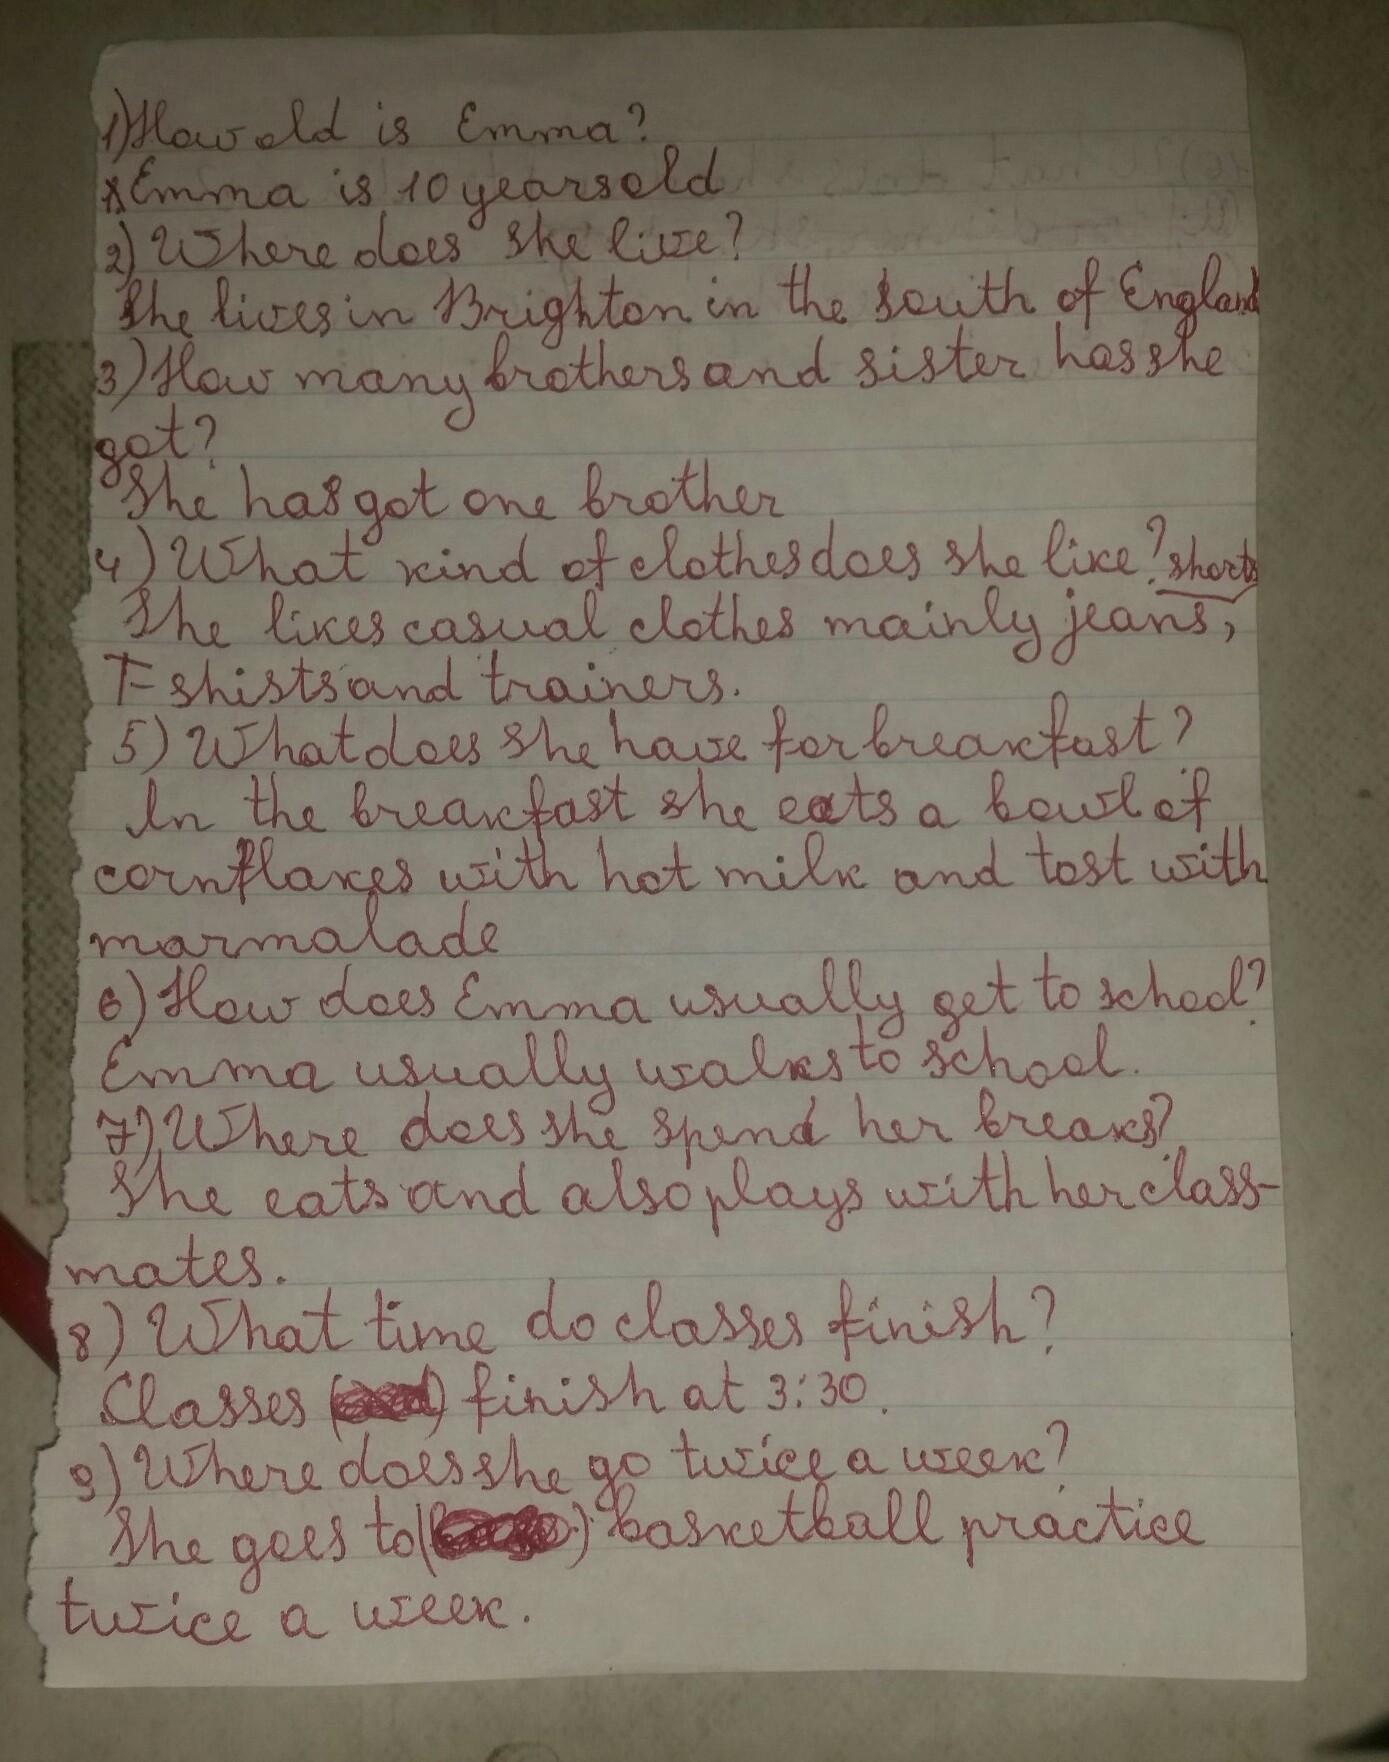 1) How old is Emma?
Emma is 10 years old
2) Where does she live?
She lives in Brighton in the south of England
3) How many brothers and sister has she
got?
She has got one brother
4) What kind of clothes does she like? shorts
She likes casual clothes mainly jeans,
T-shists and trainers.
5) What does she have for breakfast?
In the breakfast she eats a bowl of
cornflakes with hot milk and tost with
marmalade
6) How does Emma usually get to school?
Emma usually walks to school.
7) Where does she spend her breaks?
She eats and also plays with her class-
mates.
8) What time do classes finish?
Classes finish at 3:30.
9) Where does she go twice a week?
She goes to basketball practice
twice a week.